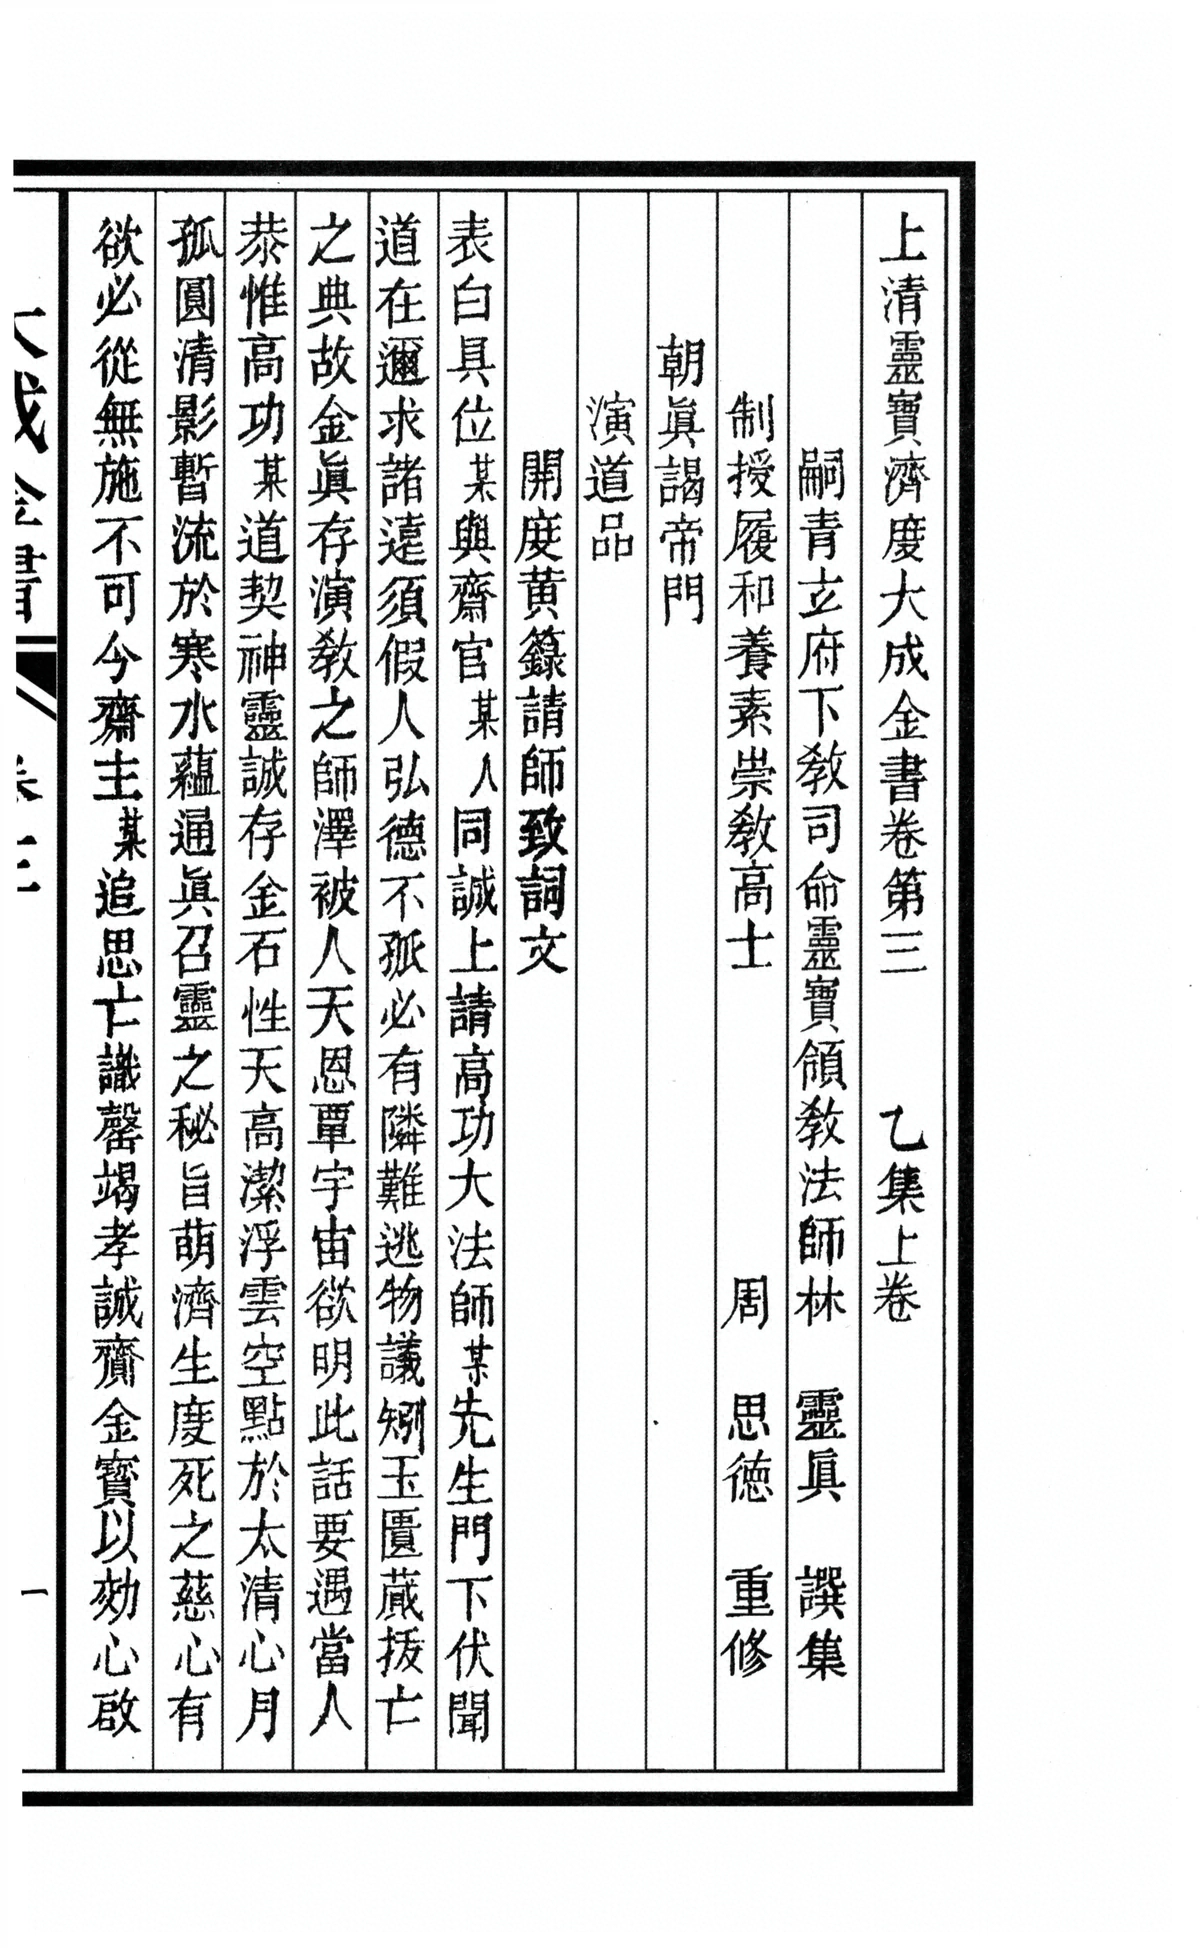 上清靈寶濟度大成金書卷第三　乙集上卷
嗣青玄府下教司命靈寶領教法師林　靈眞　譔集
制授履和養素崇教高士　周　思德　重修
朝眞謁帝門
演道品
開度黃籙請師致詞文
表白具位某與齋官某人同誠上請高功大法師某先生門下伏聞
道在邇求諸遠須假人弘德不孤必有隣難逃物議矧玉匱蕆拔亡
之典故金眞存演教之師澤被人天恩覃宇宙欲明此話要遇當人
恭惟高功某道契神靈誠存金石性天高潔浮雲空點於太清心月
孤圓清影暫流於寒水蘊通眞召靈之秘旨萌濟生度死之慈心有
欲必從無施不可今齋主某追思亡識罄竭孝誠齎金寶以効心啟
大成金書　卷三　一